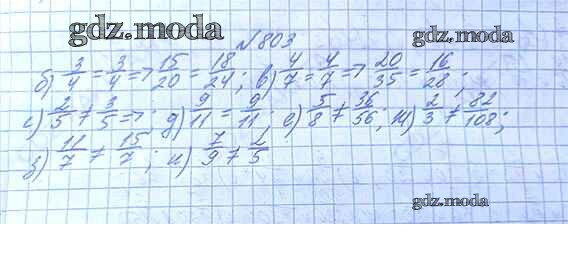 gdz.moda
№803
б) 3/4 = 3/4 => 15/20 = 18/24; в) 4/7 = 4/7 => 20/35 = 16/28;
с) 2/5 ≠ 3/5 =>; д) 9/11 = 9/11; е) 5/8 ≠ 36/56; ж) 2/3 ≠ 82/108;
з) 11/7 ≠ 15/7; и) 7/9 ≠ 2/5
gdz.moda
gdz.moda